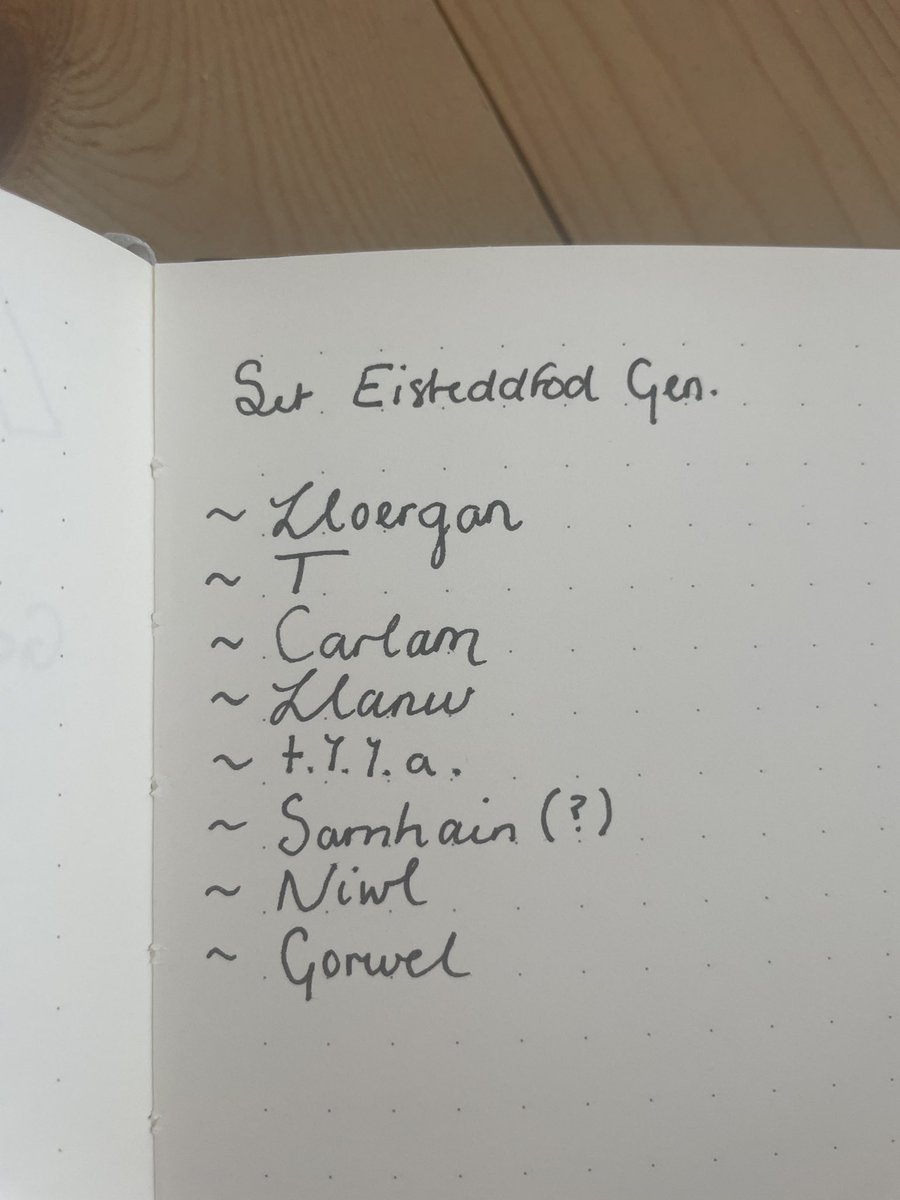 Set Eisteddfod Gen.
~ Lloergan
~ T
~ Carlam
~ Llanw
~ t.Y.Y.a.
~ Samhain (?)
~ Niwl
~ Gorwel